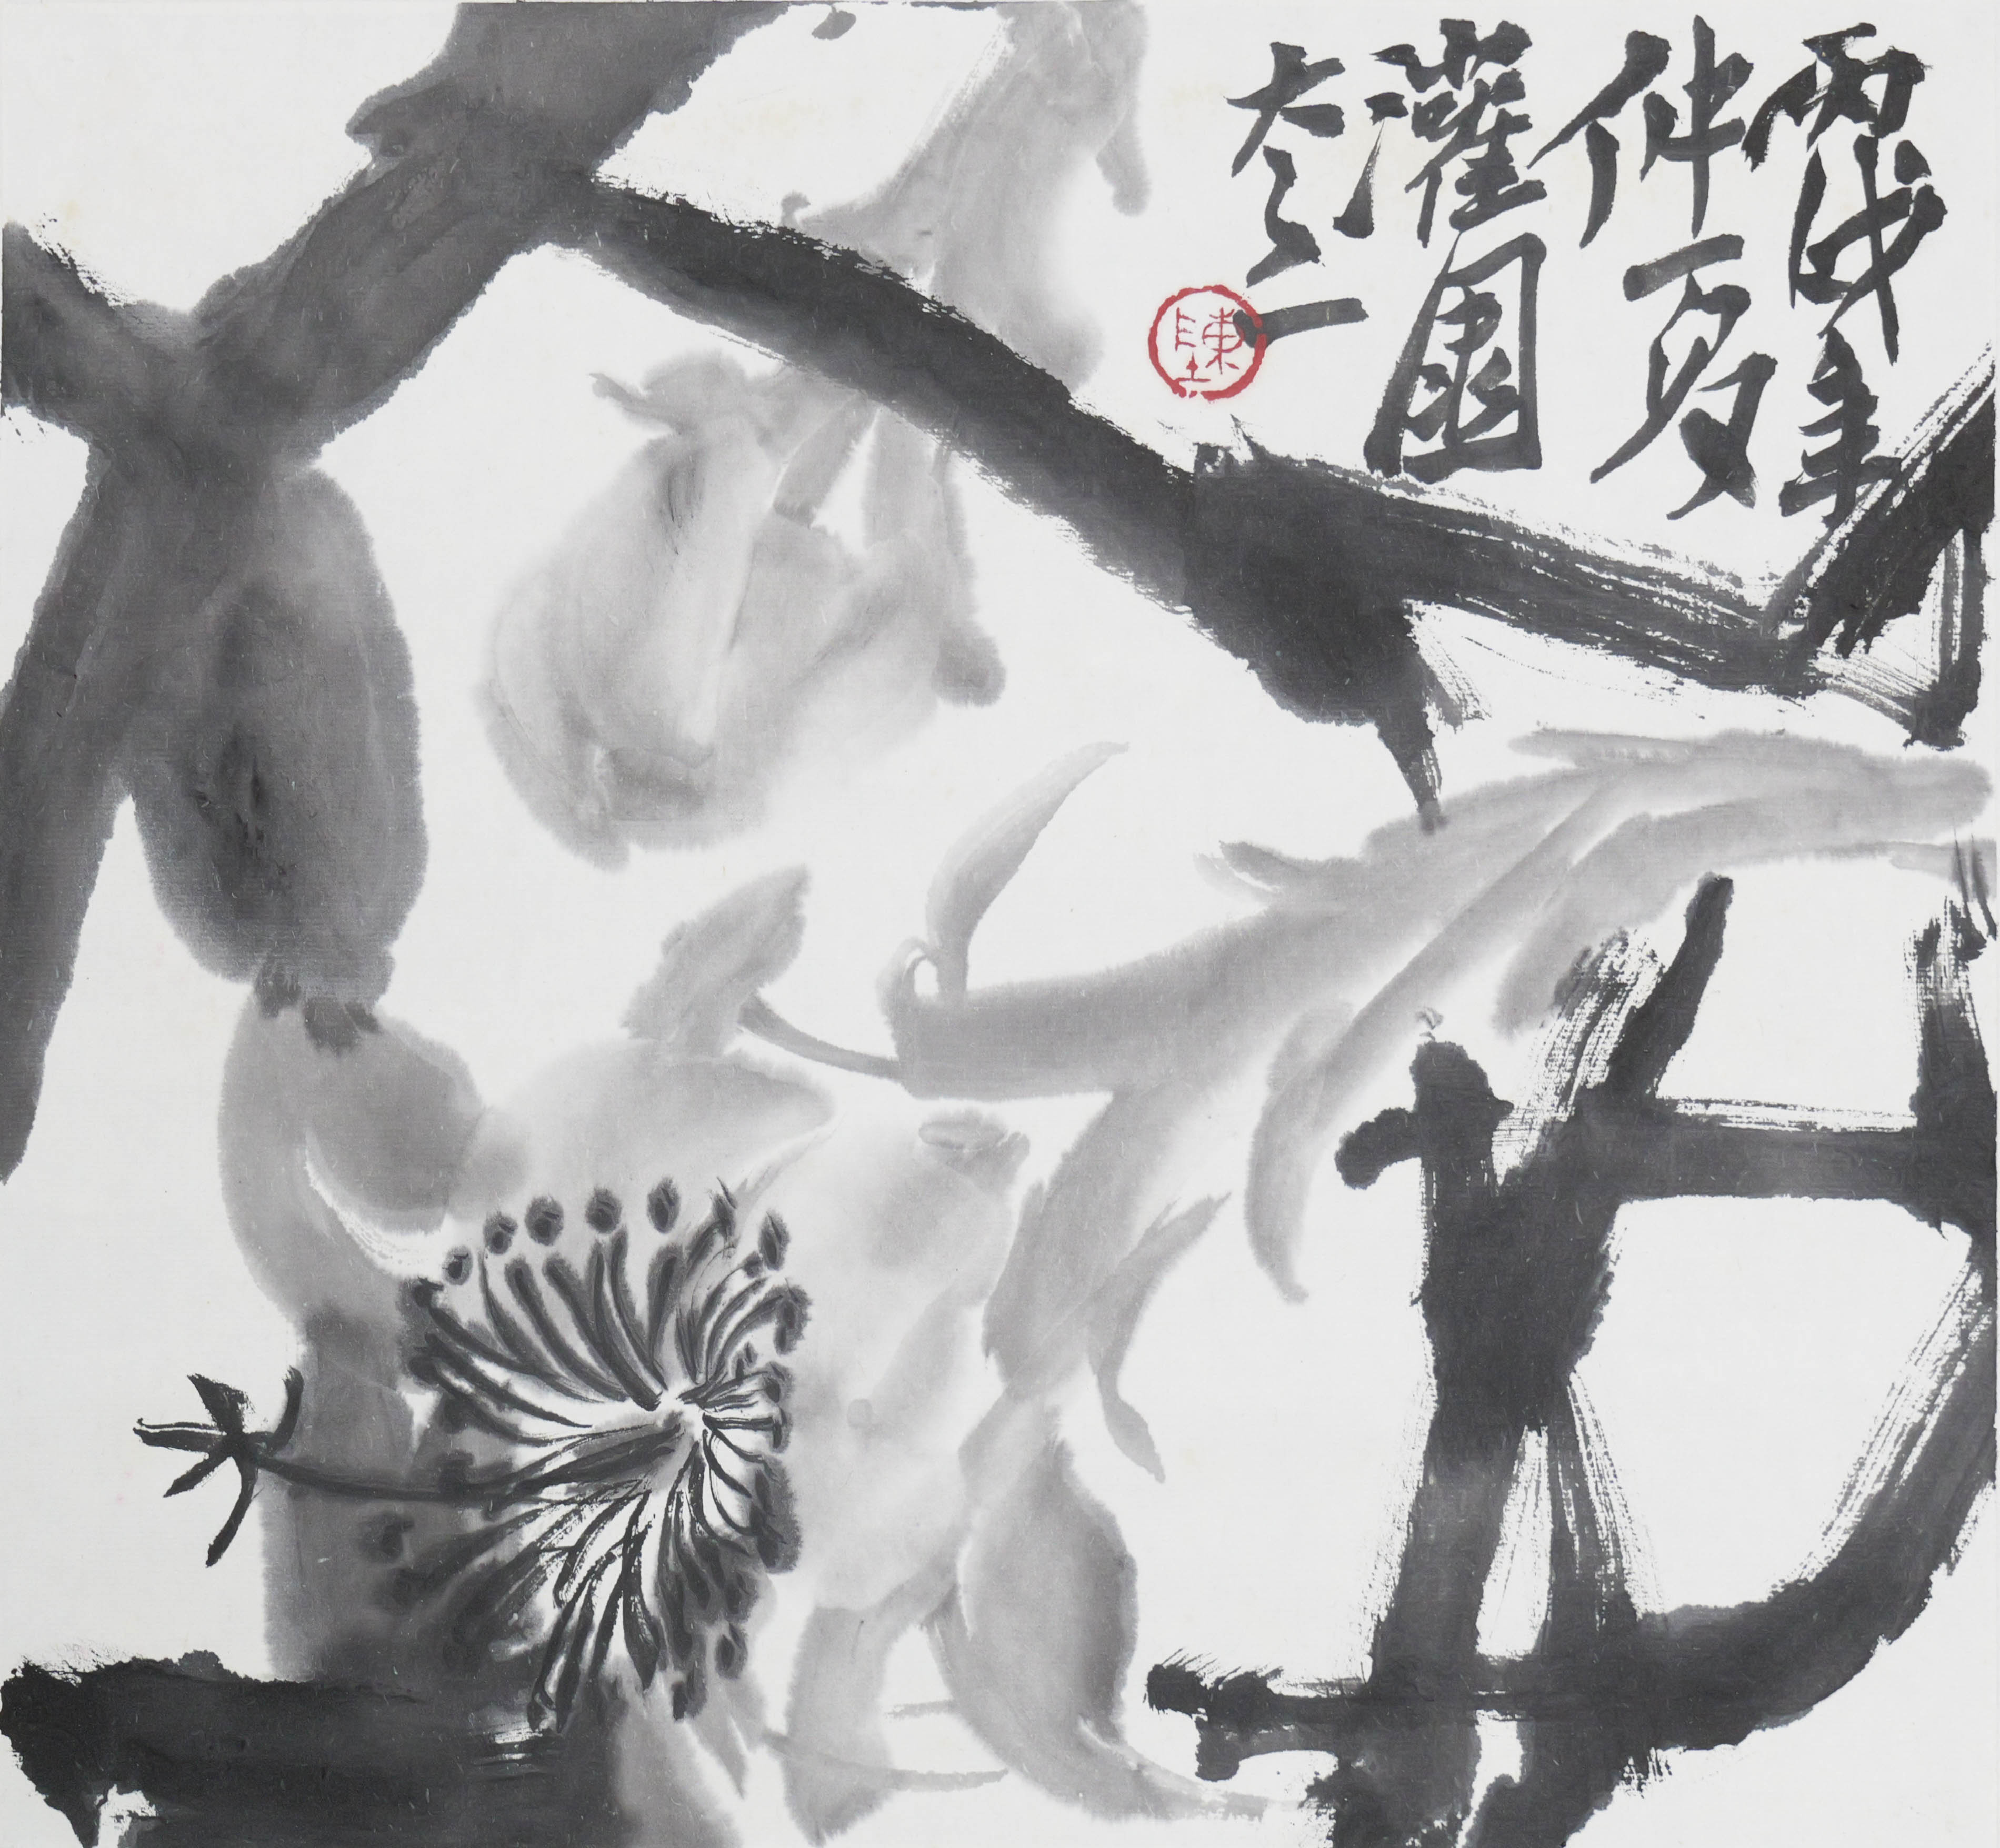 丙戌年
仲夏
灌園
陳